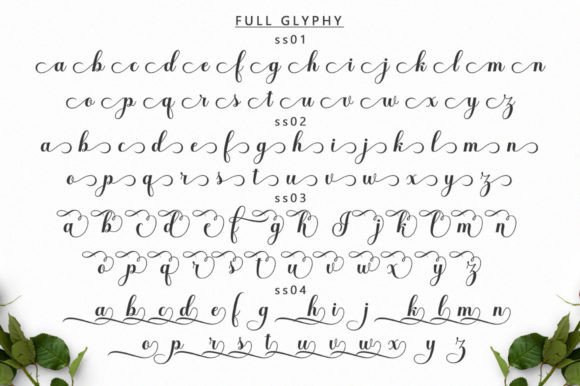 FULL GLYPHY
ss01
a b c d e f g h i j k l m n
o p q r s t u v w x y z
ss02
a b c d e f g h i j k l m n
o p q r s t u v w x y z
ss03
a b c d e f g h I j k l m n
o p q r s t u v w x y z
ss04
a b c d e f g h i j k l m n
o p r s t u v w x y z